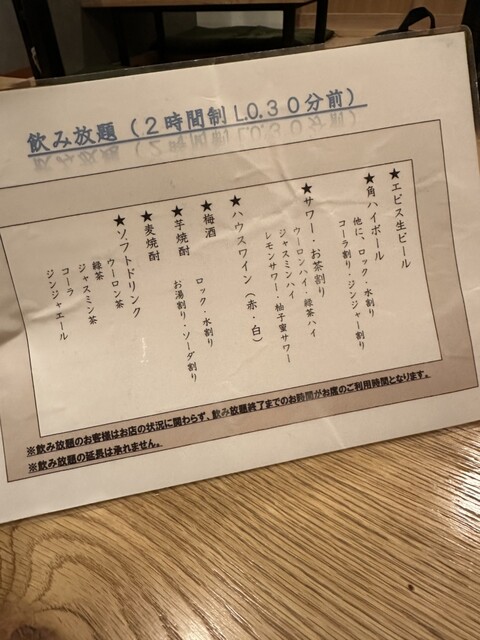 飲み放題（２時間制 L.O.３０分前）
★エビス生ビール
★角ハイボール
他に、ロック・水割り
コーラ割り・ジンジャー割り
★サワー・お茶割り
ウーロンハイ・緑茶ハイ
ジャスミンハイ
レモンサワー・柚子蜜サワー
★ハウスワイン（赤・白）
★梅酒
ロック・水割り
★芋焼酎
お湯割り・ソーダ割り
★麦焼酎
★ソフトドリンク
ウーロン茶
緑茶
ジャスミン茶
コーラ
ジンジャエール
※飲み放題のお客様はお店の状況に関わらず、飲み放題終了までのお時間がお席のご利用時間となります。
※飲み放題の延長は承れません。